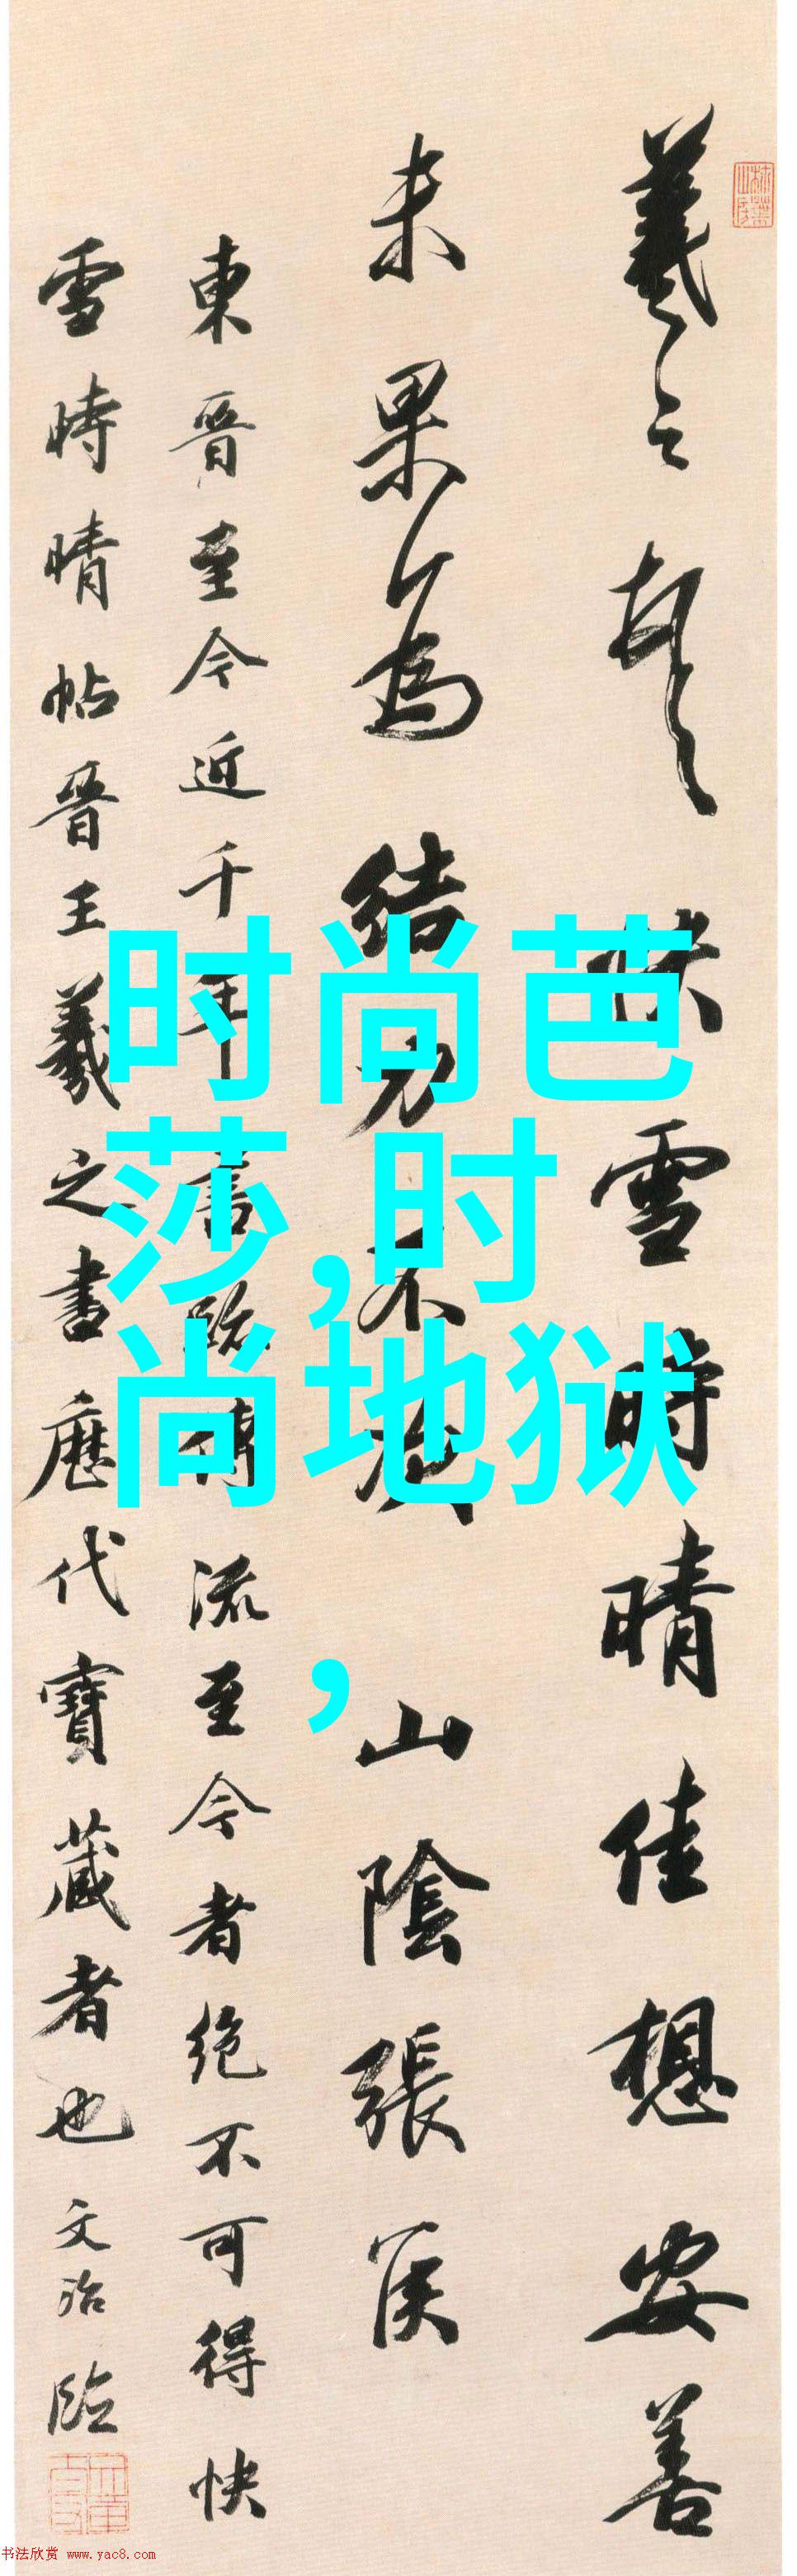 羲之頓首快雪時晴佳想安善
未果為結力不次山陰張侯
東晉至今近千年書跡傳流至今者絕不可得快
雪時晴帖晉王羲之書歷代寶藏者也文治臨
时尚芭
莎,时
尚地狱
,
书法欣赏 www.yac8.com